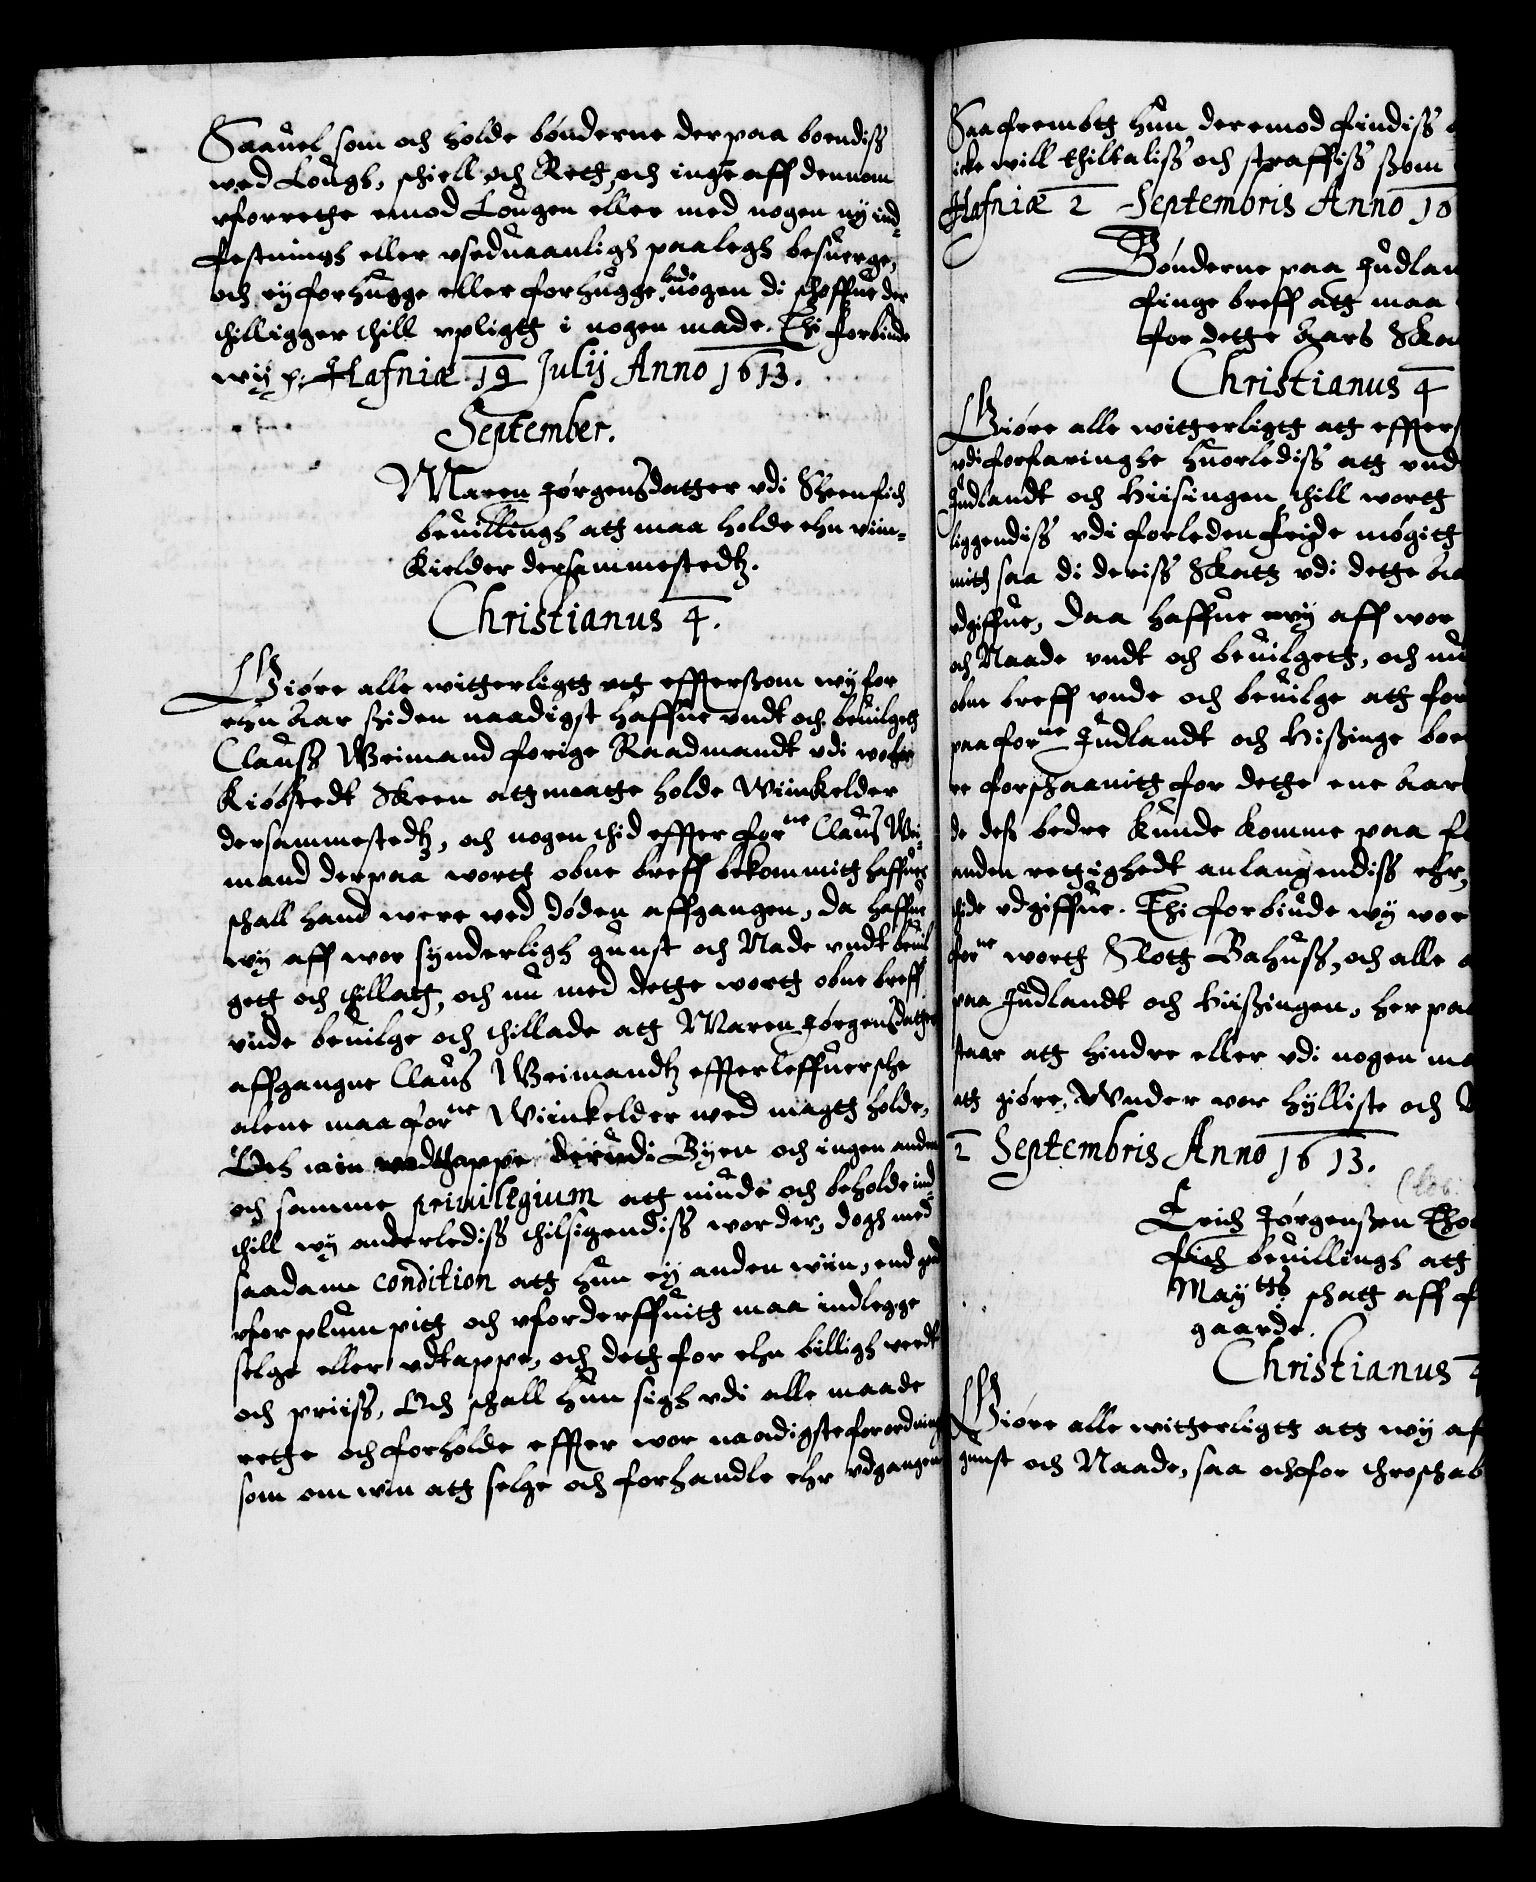 Saauel som och holde bønderne der paa boendiss
wed Lough, schiell och Reth, och inge aff dennom
vforrethe emod Lougen eller med nogen ny ind-
festningh eller vseduaanligh paalegh besuerge,
och ey forhugge eller forhugge lade nogen di schoffue der
thilligger thill vpligtt i nogen made. Thi forbinde
wy p: Hafniæ 19 Julij Anno 1613.
September.
Maren Jørgensdatter vdi Skeen fich
beuillingh att maa holde ehn viin-
kielder dersammestedtz.
Christianus 4.
Giøre alle witterligtt att effterssom wy for
ehn Aar siden naadigst haffue vndt och beuilgett
Clauss Weimand forige Raadmandt vdi wor
Kiøbstedt Skeen att maatte holde Wiinkelder
dersammestedtz, och nogen thid effter forne Clauss Wei-
mand derpaa wortt obne breff bekommitt haffuer
schall hand were ved døden affgangen, da haffue
wy aff wor synderligh gunst och Nade vndt beuil
gett och thillatt, och nu med dette wortt obne breff
vnde beuilge och thillade att Maren Jørgensdatter
affgangne Claus Weimandtz effterleffuersche
alene maa forne Wiinkelder wed magtt holde,
Och wiin vdtappe der vdi Byen och ingen anden
och samme priuilegium att niude och beholde ind
thill wy anderlediss thilsigendiss worder, dogh med
saadann condition att hun ey anden wiin, end god
vforplumpitt och vforderffuitt maa indlegge
selge eller vdtappe, och dett for ehn billigh werdt
och priiss, Och schall hun sigh vdi alle maade
rette och forholde effter wor naadigste forordning
som om wiin att selge och forhandle ehr vdgangen
Saafrembtt hun der emod findiss
icke will thiltaliss och straffiss ssom
Hafniæ 2 Septembris Anno 16
Bønderne paa Judlan
finge breff att maa
for dette Aars Ska
Christianus 4
Giøre alle witterligtt att effters
vdi forfaringhe huorlediss att vnd
Judlandt och Hiisingen thill wortt
liggendiss vdi forleden feide møgitt
mitt saa di deriss Skatt vdi dette Aa
vdgiffue, Daa haffue wy aff wor
och Naade vndt och beuilgett, och nu
obne breff vnde och beuilge att for
paa forne Judlandt och Hissinge boe
re forschaanitt for dette ene Aar
de dess bedre kunde komme paa f
anden rettighedt anlangendiss ehr,
thide vdgiffue. Thi forbiude wy wor
forne wortt Slott Bahuss, och alle a
paa Judlandt och Hiissingen, her paa
staar att hindre eller vdi nogen ma
att giøre, Wnder wor hylliste och N
2 Septembris Anno 1613.
Erich Jørgenssen Tho
fich beuillingh att
Maytts schatt aff f
gaarde.
Christianus 4
Giøre alle witterligtt att wy af
gunst och Naade, saa och for throschab